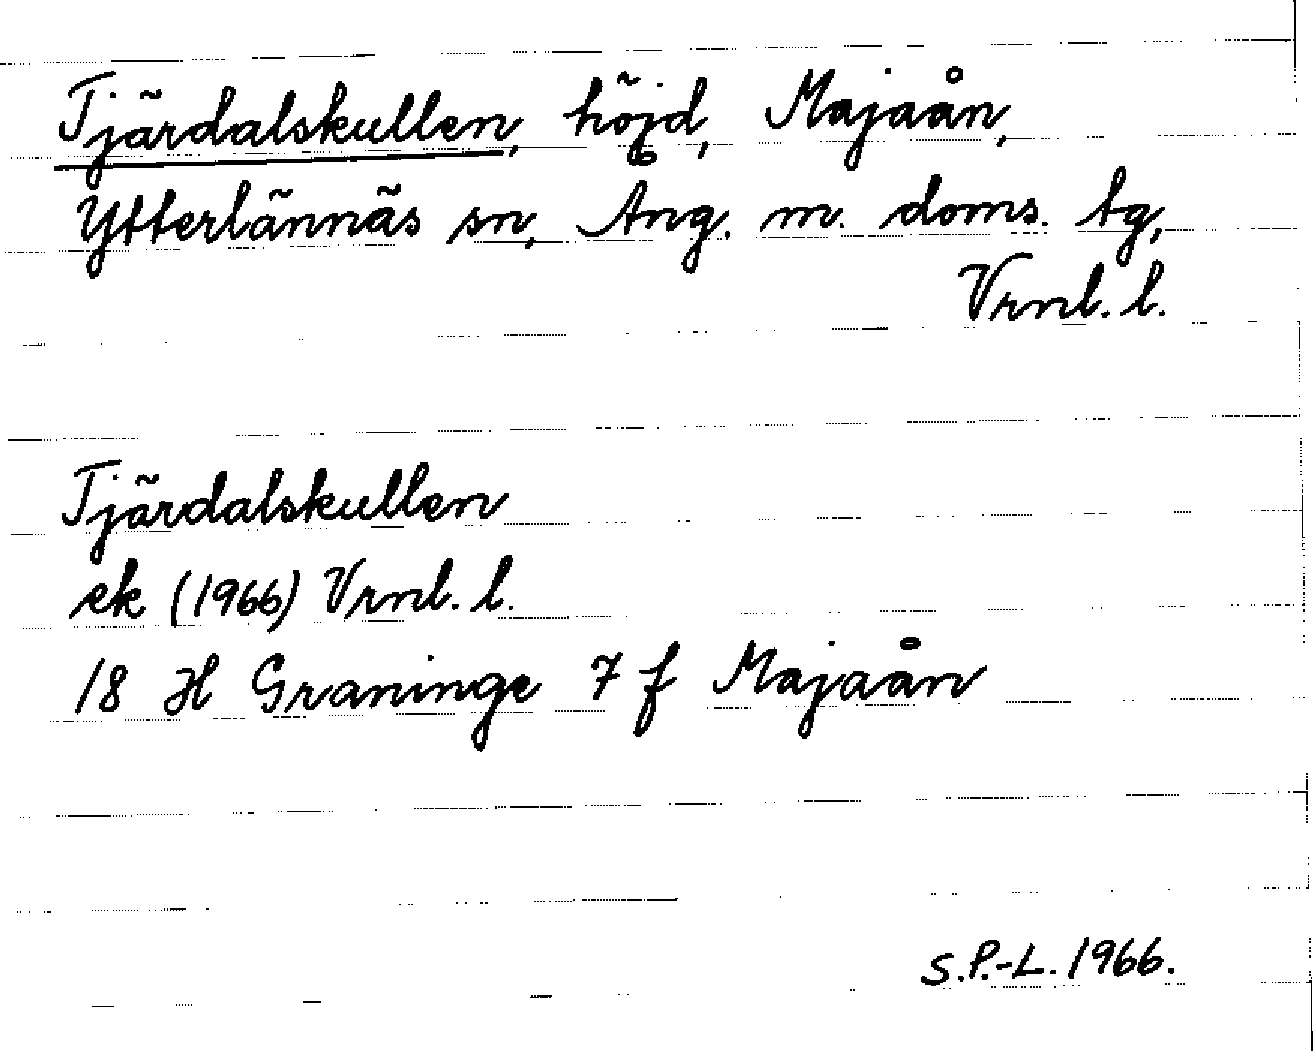 Tjärdalskullen, höjd, Majaån,
Ytterlännäs sn, Ång. m. doms. tg,
Vrnl. l.
Tjärdalskullen
ek (1966) Vrnl. l.
18 H Graninge 7 f Majaån
S.P.-L. 1966.